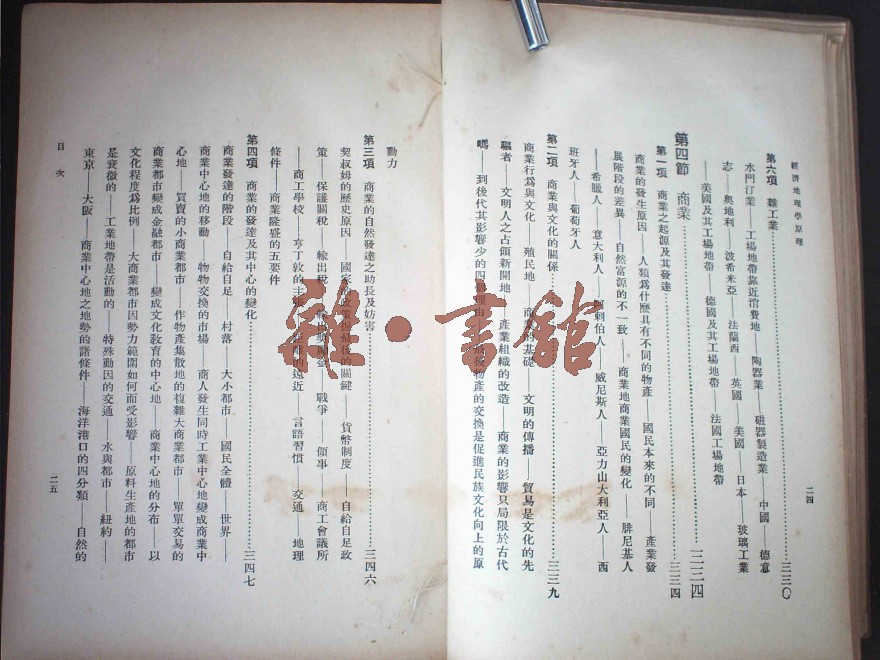 經濟地理學原理
二四
第六項 雜工業……三三〇
水門汀業——工場地帶靠近消費地——陶器業——磁器製造業——中國——德意
志——奧地利——波希米亞——法蘭西——英國——美國——日本——玻璃工業
——美國及其工場地帶——德國及其工場地帶——法國工場地帶
第四節 商業……三三四
第一項 商業之起源及其發達……三三四
商業的發生原因——人類爲什麼具有不同的物產——國民本來的不同——產業發
展階段的差異——自然富源的不一致——商業地商業國民的變化——腓尼基人
——希臘人——意大利人——阿剌伯人——威尼斯人——亞力山大利亞人——西
班牙人——葡萄牙人
第二項 商業與文化的關係……三三九
商業行爲與文化——殖民地——商業的基礎——文明的傳播——貿易是文化的先
驅者——文明人之占領新開地——產業組織的改造——商業的影響只局限於古代
嗎——到後代其影響少的四個理由——物產的交換是促進民族文化向上的原
動力
第三項 商業的自然發達之助長及妨害……三四六
契叔姆的歷史原因——國家的政策握最後的關鍵——貨幣制度——自給自足政
策——保護關稅——輸出稅——戰爭——領事——商工會議所
——商工學校——亨丁敦的主張——距離的遠近——言語習慣——交通——地理
條件——商業隆盛的五要件
第四項 商業的發達及其中心的變化……三四七
商業發達的階段——自給自足——村落——大小都市——國民全體——世界——
商業中心地的移動——物物交換的市場——商人發生同時工業中心地變成商業中
心地——買賣的小商業都市——作物產集散地的複雜大商業都市——單單交易的
商業都市變成金融都市——變成文化教育的中心地——商業中心地的分布——以
文化程度爲比例——大商業都市因勢力範圍如何而受影響——原料生產地的都市
是衰微的——工業地帶是活動的——特殊動因的交通——水與都市——紐約——
東京——大阪——商業中心地之地勢的諸條件——海洋港口的四分類——自然的
目次
二五
雜·書館